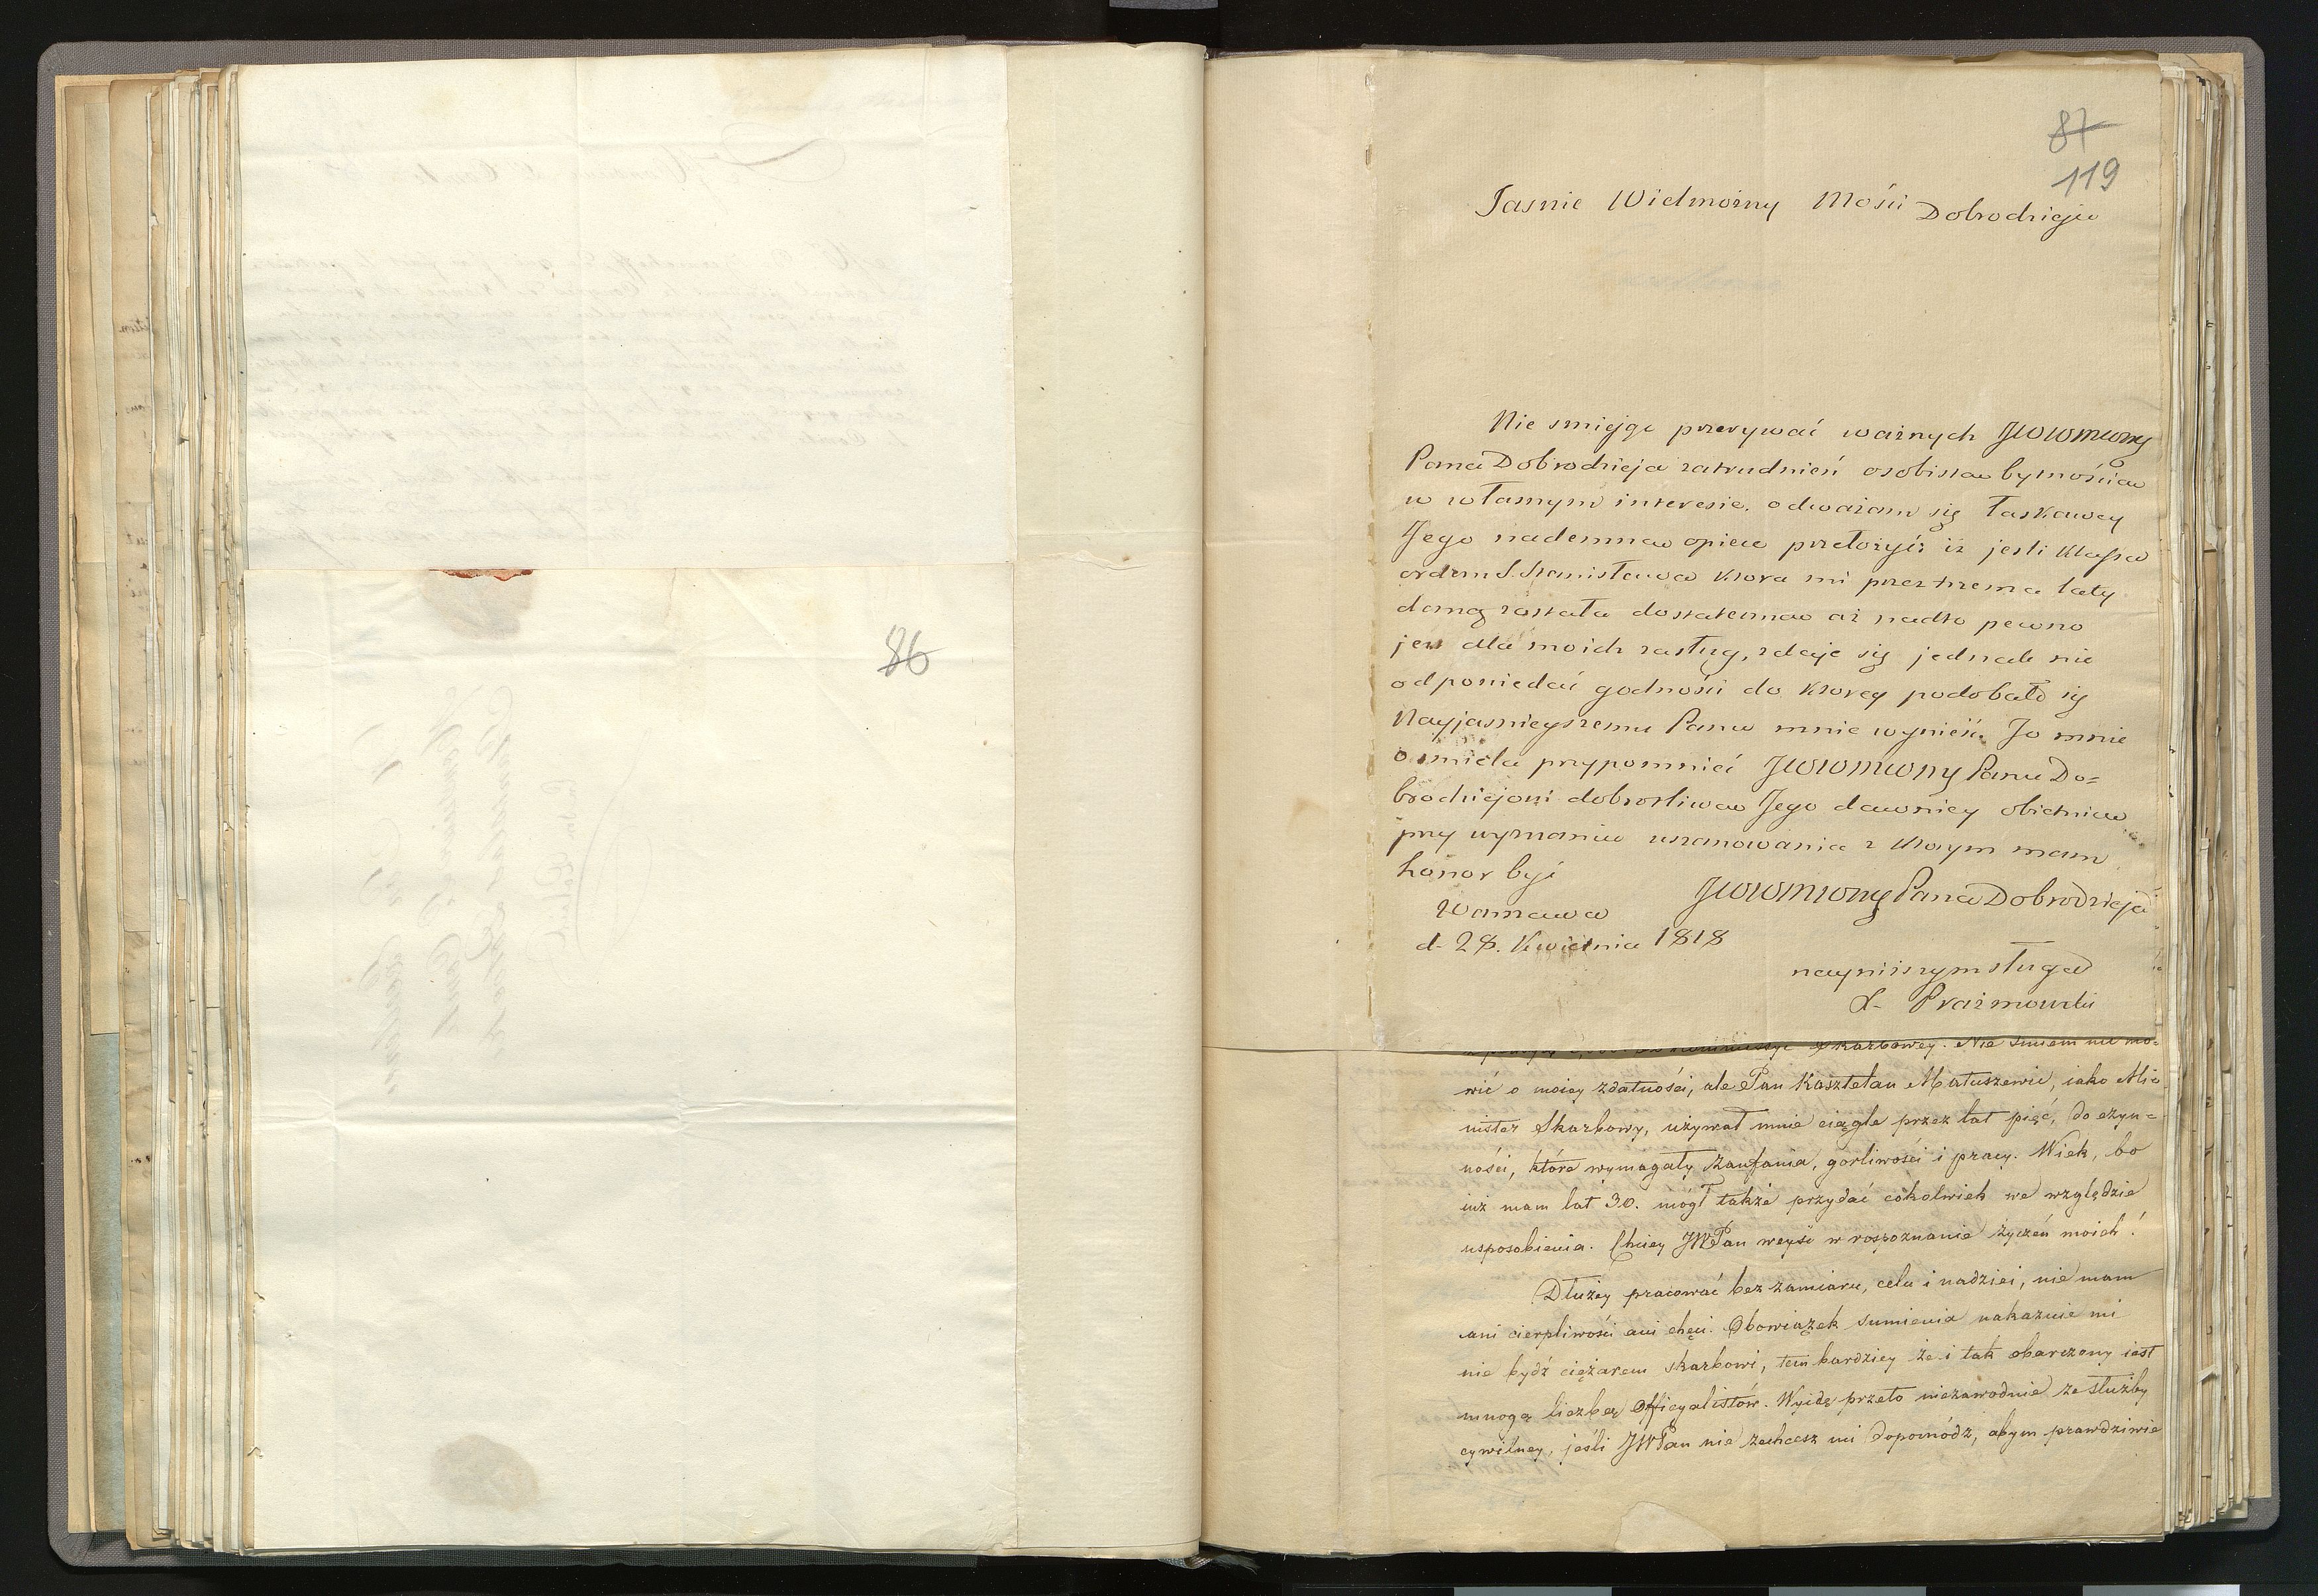 86
87
119
Jasnie Wielmożny Mości Dobrodzieju
Nie smiejąc przerywać ważnych JWWMWMy
Pana Dobrodzieja zatrudnień osobistaw bytnościaw
w własnym interesie. odważam się łaskawey
Jego nademnaw opiece przełożyć; iż jesli Klassa
orderu S. Stanisława ktora mi przez trzema laty
daną została dostateczna aż nadto pewno
jest dla moich zasług, zdaje się jednak nie
odpowiedać godności do ktorey podobało się
Nayjasnieyszemu Panu mnie wynieść. To mnie
osmiela przypomnieć JWWMWMy Panu Do=
brodziejowi dobrotliwaw Jego dawniey obietnicaw
przy wyznaniu uszanowania z ktorym mam
honor być
JWWMWMy Pana Dobrodzieja
Warszawa
d. 28. Kwietnia 1818
nayniższym sługaw
Prażmowski
Skarbowey. Nie smiem mó=
wić o moiey zdatności, ale Pan Kasztelan Matuszewic, iako Mi
nister Skarbowy, używał mnie ciągle przez lat pięć, do czyn=
ności, które wymagały zaufania, gorliwości i pracy. Wiek, bo
iuż mam lat 30. mógł także przydać cokolwiek we względzie
usposobienia. Chciey JWPan weyść w rospoznanie życzeń moich!
Dłużey pracować bez zamiaru, celu i nadziei, nie mam
ani cierpliwości ani chęci. Obowiązek sumienia nakazuie mi
nie bydź ciężarem skarbowi, tem bardziey że i tak obarczony iest
mnogą liczbą Officyalistów. Wyidę przeto niezawodnie ze służby
cywilney, jeśli JWPan nie zechcesz mi dopomódz, abym prawdziwie